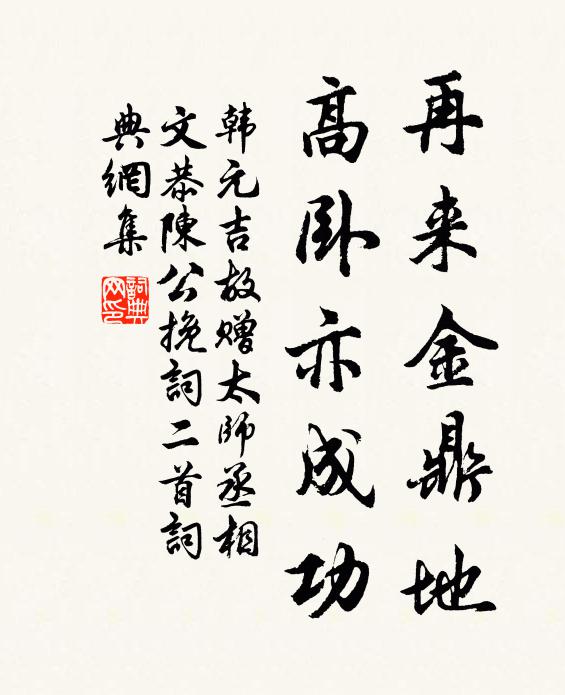 再来金鼎地
高卧亦成功
韩元吉故赠太师丞相
文恭陳公挽詞二首詞
典網集
詞典网印